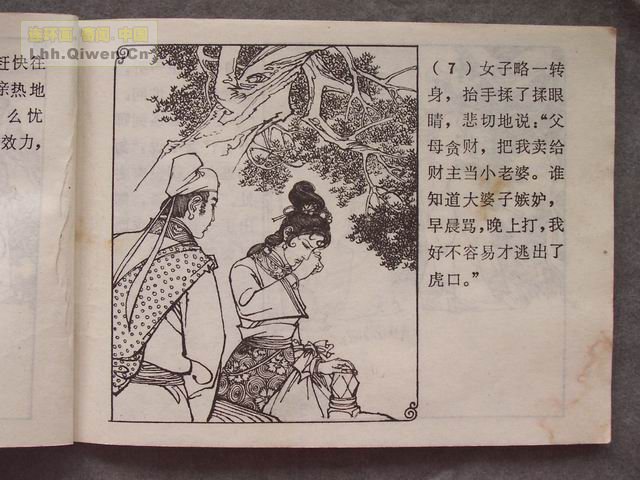 连环画·奇闻·中国
Lhh.Qiwen.Cn
赶快往
亲热地
么忧
效力，
（7）女子略一转
身，抬手揉了揉眼
睛，悲切地说：“父
母贪财，把我卖给
财主当小老婆。谁
知道大婆子嫉妒，
早晨骂，晚上打，我
好不容易才逃出了
虎口。”